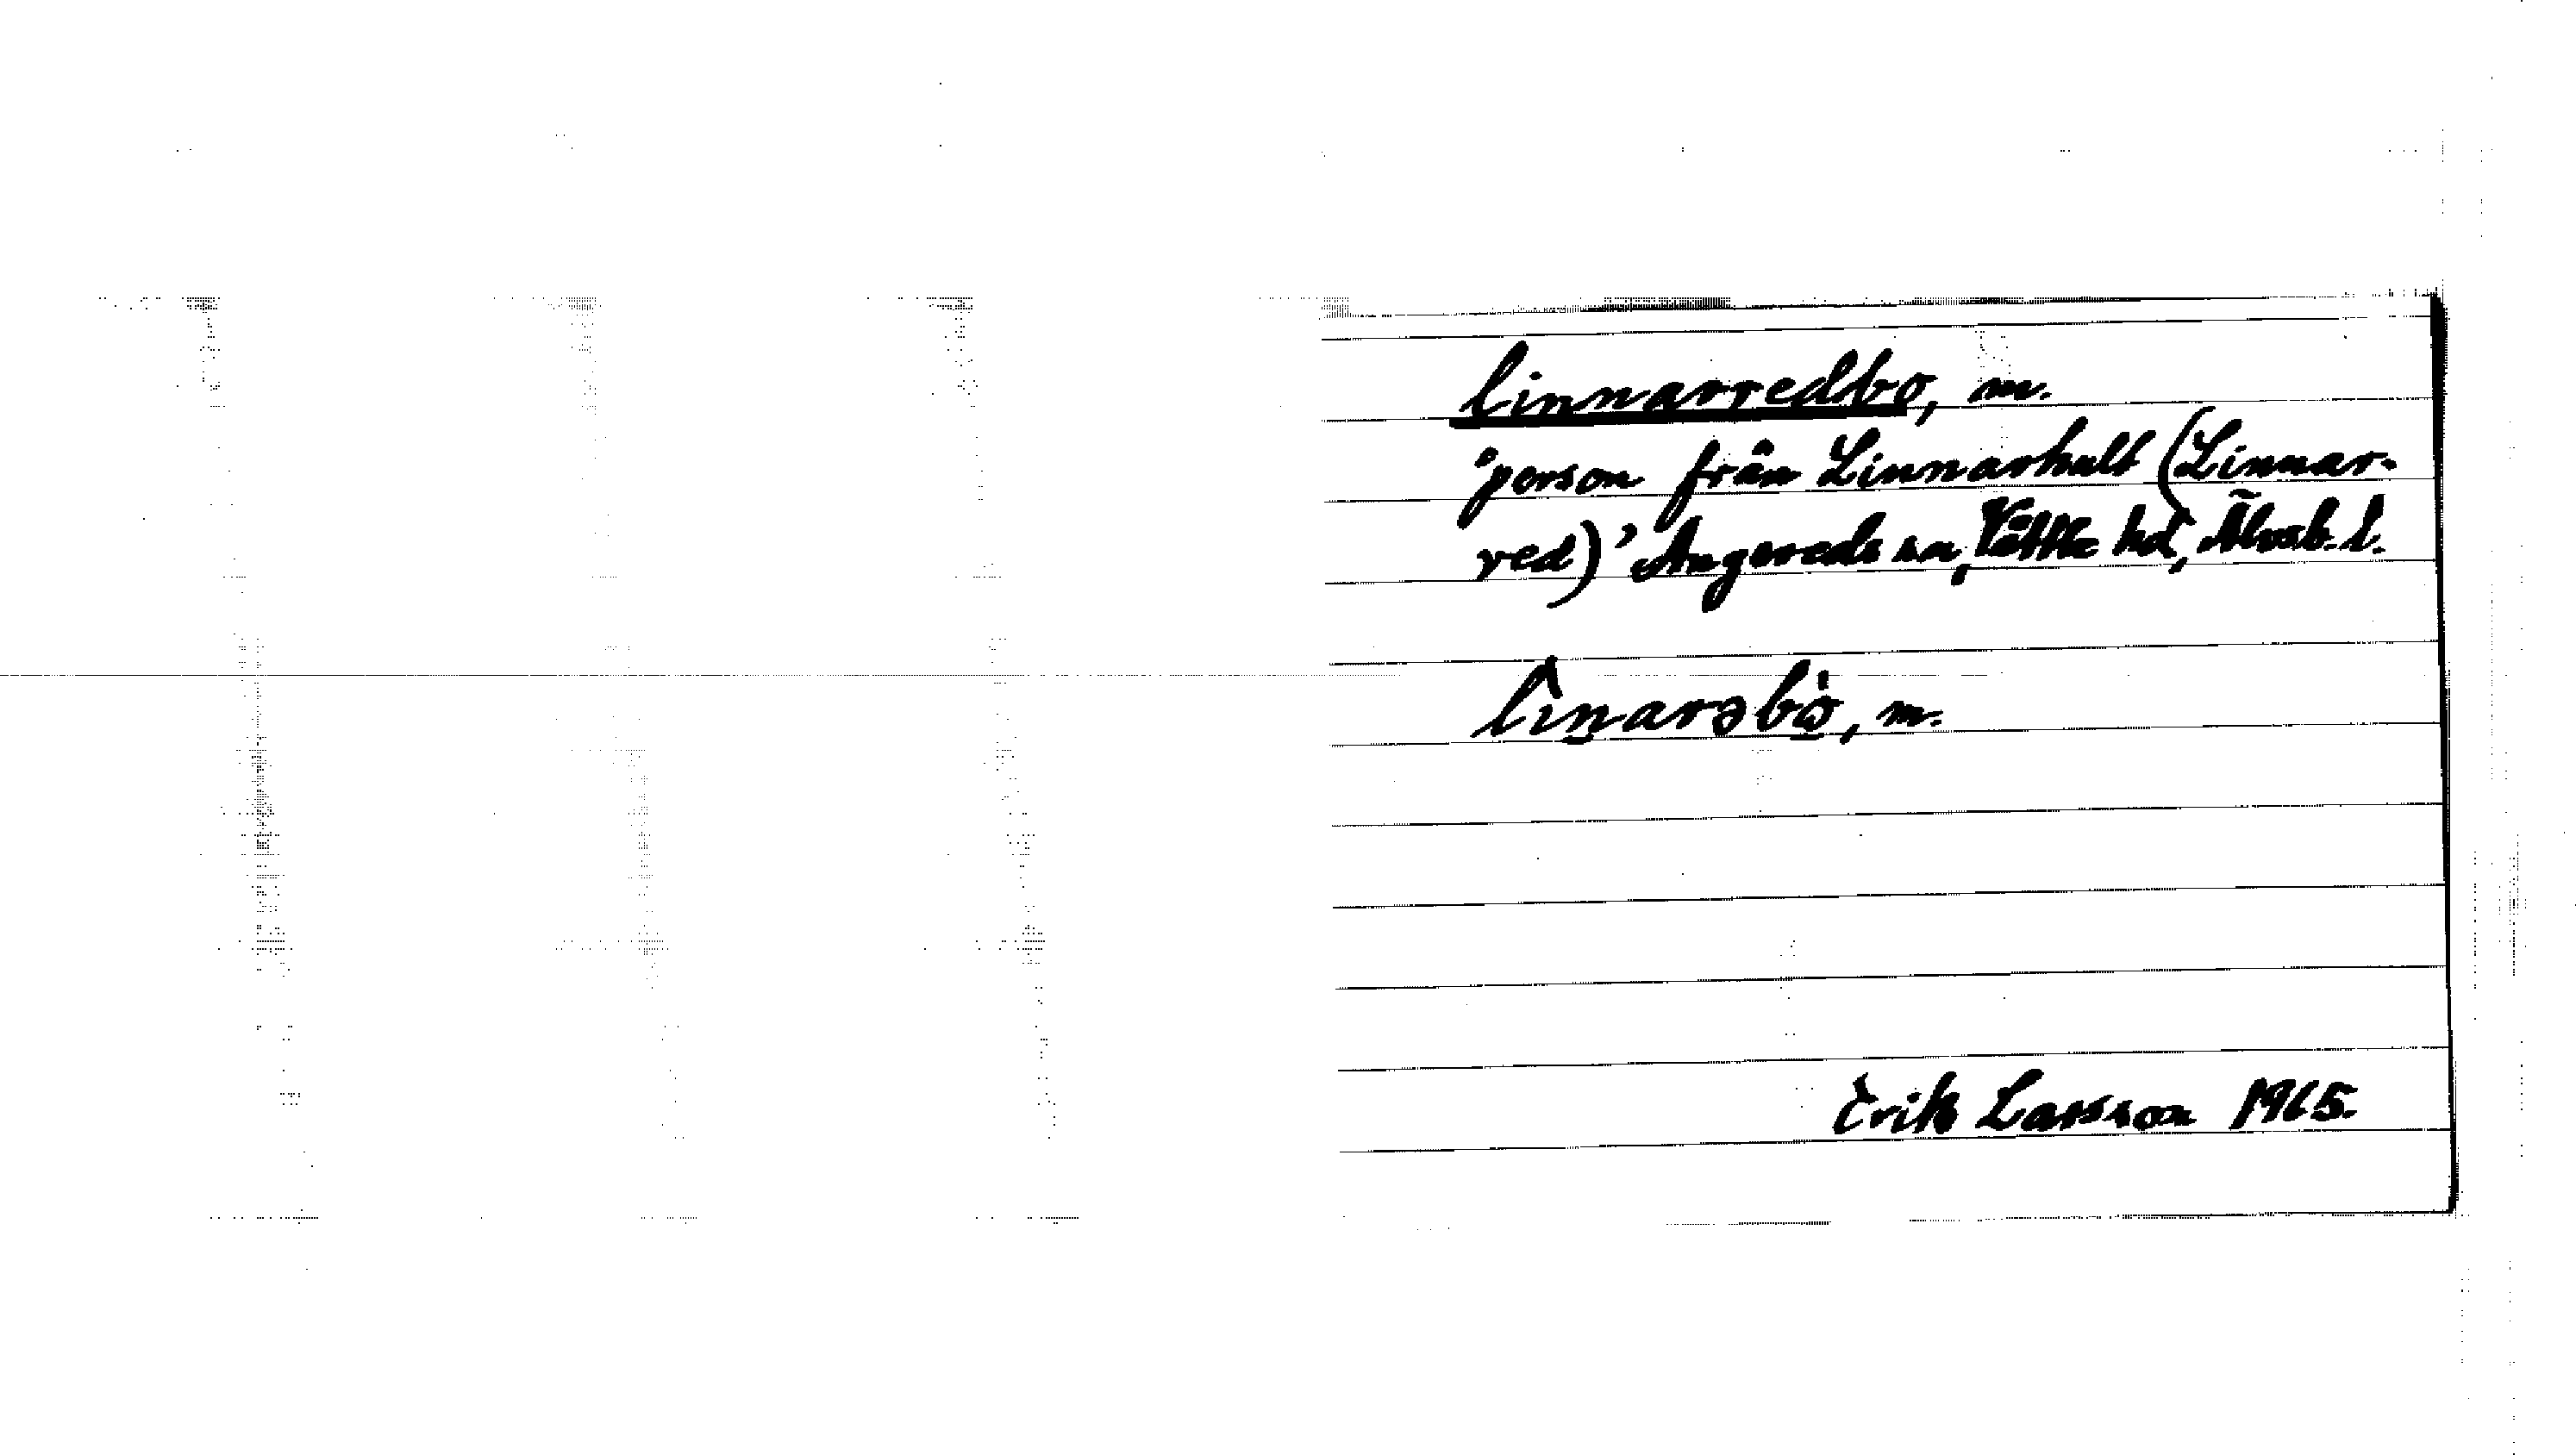 linnarredbo, m.
'person från Linnarhult (Linnar-
red)' Angereds sn, Vättle hd, Älvsb. l.
lìn̠arəbὼ̠, m.
Erik Larsson 1965.